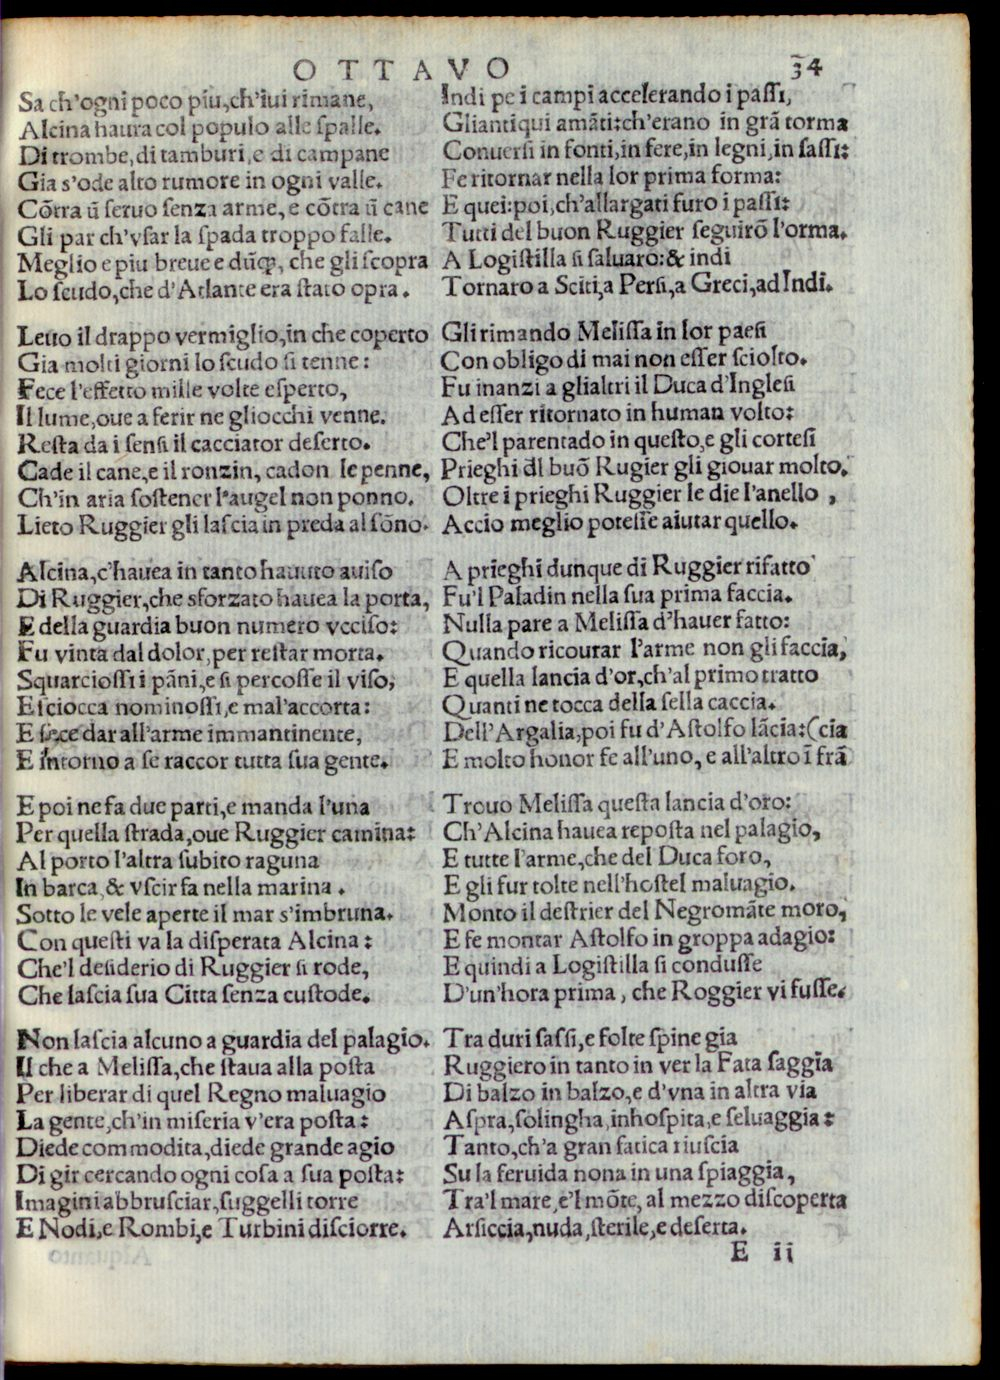 OTTAVO 34
Sa ch'ogni poco piu, ch'iui rimane,
Alcina haura col populo alle ſpalle.
Di trombe, di tamburi, e di campane
Gia s'ode alto rumore in ogni valle.
Cõtra ũ ſeruo ſenza arme, e cõtra ũ cane
Gli par ch'vſar la ſpada troppo falle.
Meglio e piu breue e dũq;, che gli ſcopra
Lo ſcudo, che d'Atlante era ſtato opra.
Leuo il drappo vermiglio, in che coperto
Gia molti giorni lo ſcudo ſi tenne:
Fece l'effetto mille volte eſperto,
Il lume, oue a ferir ne gliocchi venne.
Reſta da i ſenſi il cacciator deſerto.
Cade il cane, e il ronzin, cadon le penne,
Ch'in aria ſoſtener l'augel non ponno.
Lieto Ruggier gli laſcia in preda al ſõno.
Alcina, c'hauea in tanto hauuto auiſo
Di Ruggier, che sforzato hauea la porta,
E della guardia buon numero vcciſo:
Fu vinta dal dolor, per reſtar morta.
Squarcioſſi i pãni, e ſi percoſſe il viſo,
E ſciocca nominoſſi, e mal'accorta:
E fece dar all'arme immantinente,
E intorno a ſe raccor tutta ſua gente.
E poi ne fa due parti, e manda l'una
Per quella ſtrada, oue Ruggier camina:
Al porto l'altra ſubito raguna
In barca, & vſcir fa nella marina.
Sotto le vele aperte il mar s'imbruna.
Con queſti va la diſperata Alcina:
Che'l deſiderio di Ruggier ſi rode,
Che laſcia ſua Citta ſenza cuſtode.
Non laſcia alcuno a guardia del palagio.
Il che a Meliſſa, che ſtaua alla poſta
Per liberar di quel Regno maluagio
La gente, ch'in miſeria v'era poſta:
Diede commodita, diede grande agio
Di gir cercando ogni coſa a ſua poſta:
Imagini abbruſciar, ſuggelli torre
E Nodi, e Rombi, e Turbini diſciorre.
Indi pe i campi accelerando i paſſi,
Gliantiqui amãti: ch'erano in grã torma
Conuerſi in fonti, in fere, in legni, in ſaſſi:
Fe ritornar nella lor prima forma:
E quei: poi, ch'allargati furo i paſſi:
Tutti del buon Ruggier ſeguirõ l'orma.
A Logiſtilla ſi ſaluaro: & indi
Tornaro a Sciti, a Perſi, a Greci, ad Indi.
Gli rimando Meliſſa in lor paeſi
Con obligo di mai non eſſer ſciolto.
Fu inanzi a glialtri il Duca d'Ingleſi
Ad eſſer ritornato in human volto:
Che'l parentado in queſto, e gli corteſi
Prieghi dl buõ Rugier gli giouar molto.
Oltre i prieghi Ruggier le die l'anello,
Accio meglio poteſſe aiutar quello.
A prieghi dunque di Ruggier rifatto
Fu'l Paladin nella ſua prima faccia.
Nulla pare a Meliſſa d'hauer fatto:
Quando ricourar l'arme non gli faccia,
E quella lancia d'or, ch'al primo tratto
Quanti ne tocca della ſella caccia.
Dell'Argalia, poi fu d'Aſtolfo lãcia: (cia
E molto honor fe all'uno, e all'altro ĩ frã
Trouo Meliſſa queſta lancia d'oro:
Ch'Alcina hauea repoſta nel palagio,
E tutte l'arme, che del Duca foro,
E gli fur tolte nell'hoſtel maluagio.
Monto il deſtrier del Negromãte moro,
E fe montar Aſtolfo in groppa adagio:
E quindi a Logiſtilla ſi conduſſe
D'un'hora prima, che Roggier vi fuſſe.
Tra duri ſaſſi, e folte ſpine gia
Ruggiero in tanto in ver la Fata ſaggia
Di balzo in balzo, e d'vna in altra via
Aſpra, ſolingha, inhoſpita, e ſeluaggia:
Tanto, ch'a gran fatica riuſcia
Su la feruida nona in una ſpiaggia,
Tra'l mare, e'l mõte, al mezzo diſcoperta
Arſiccia, nuda, ſterile, e deſerta.
E ii